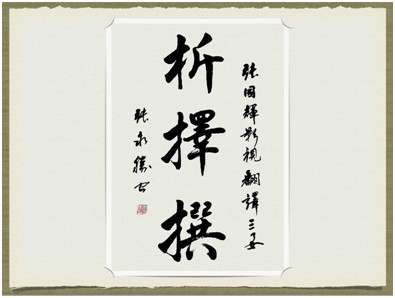 張國輝影視翻譯三要
析擇撰
張永勝书